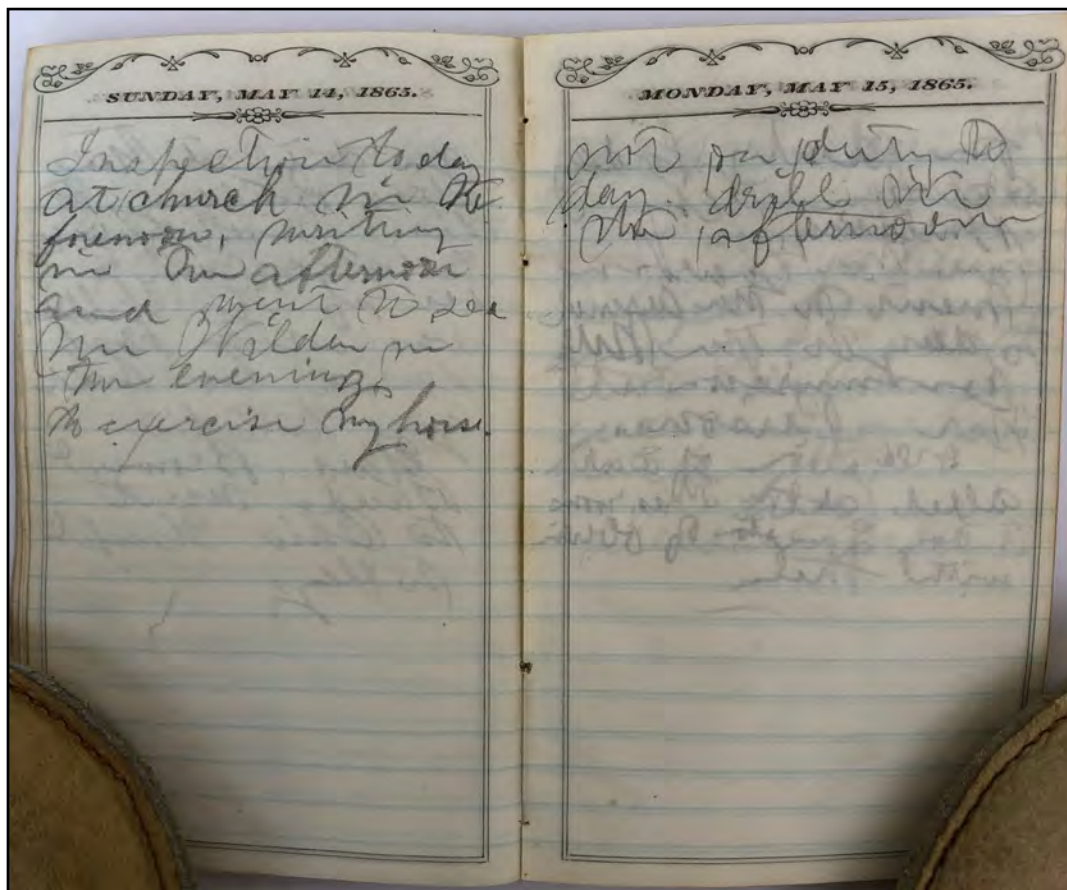 SUNDAY, MAY 14, 1865.
Inspection to day
at church in the
forenoon, writing
in the afternoon
and went to see
Wilder in
the evening
to exercise my horse.
MONDAY, MAY 15, 1865.
not on duty to
day. drill in
the afternoon